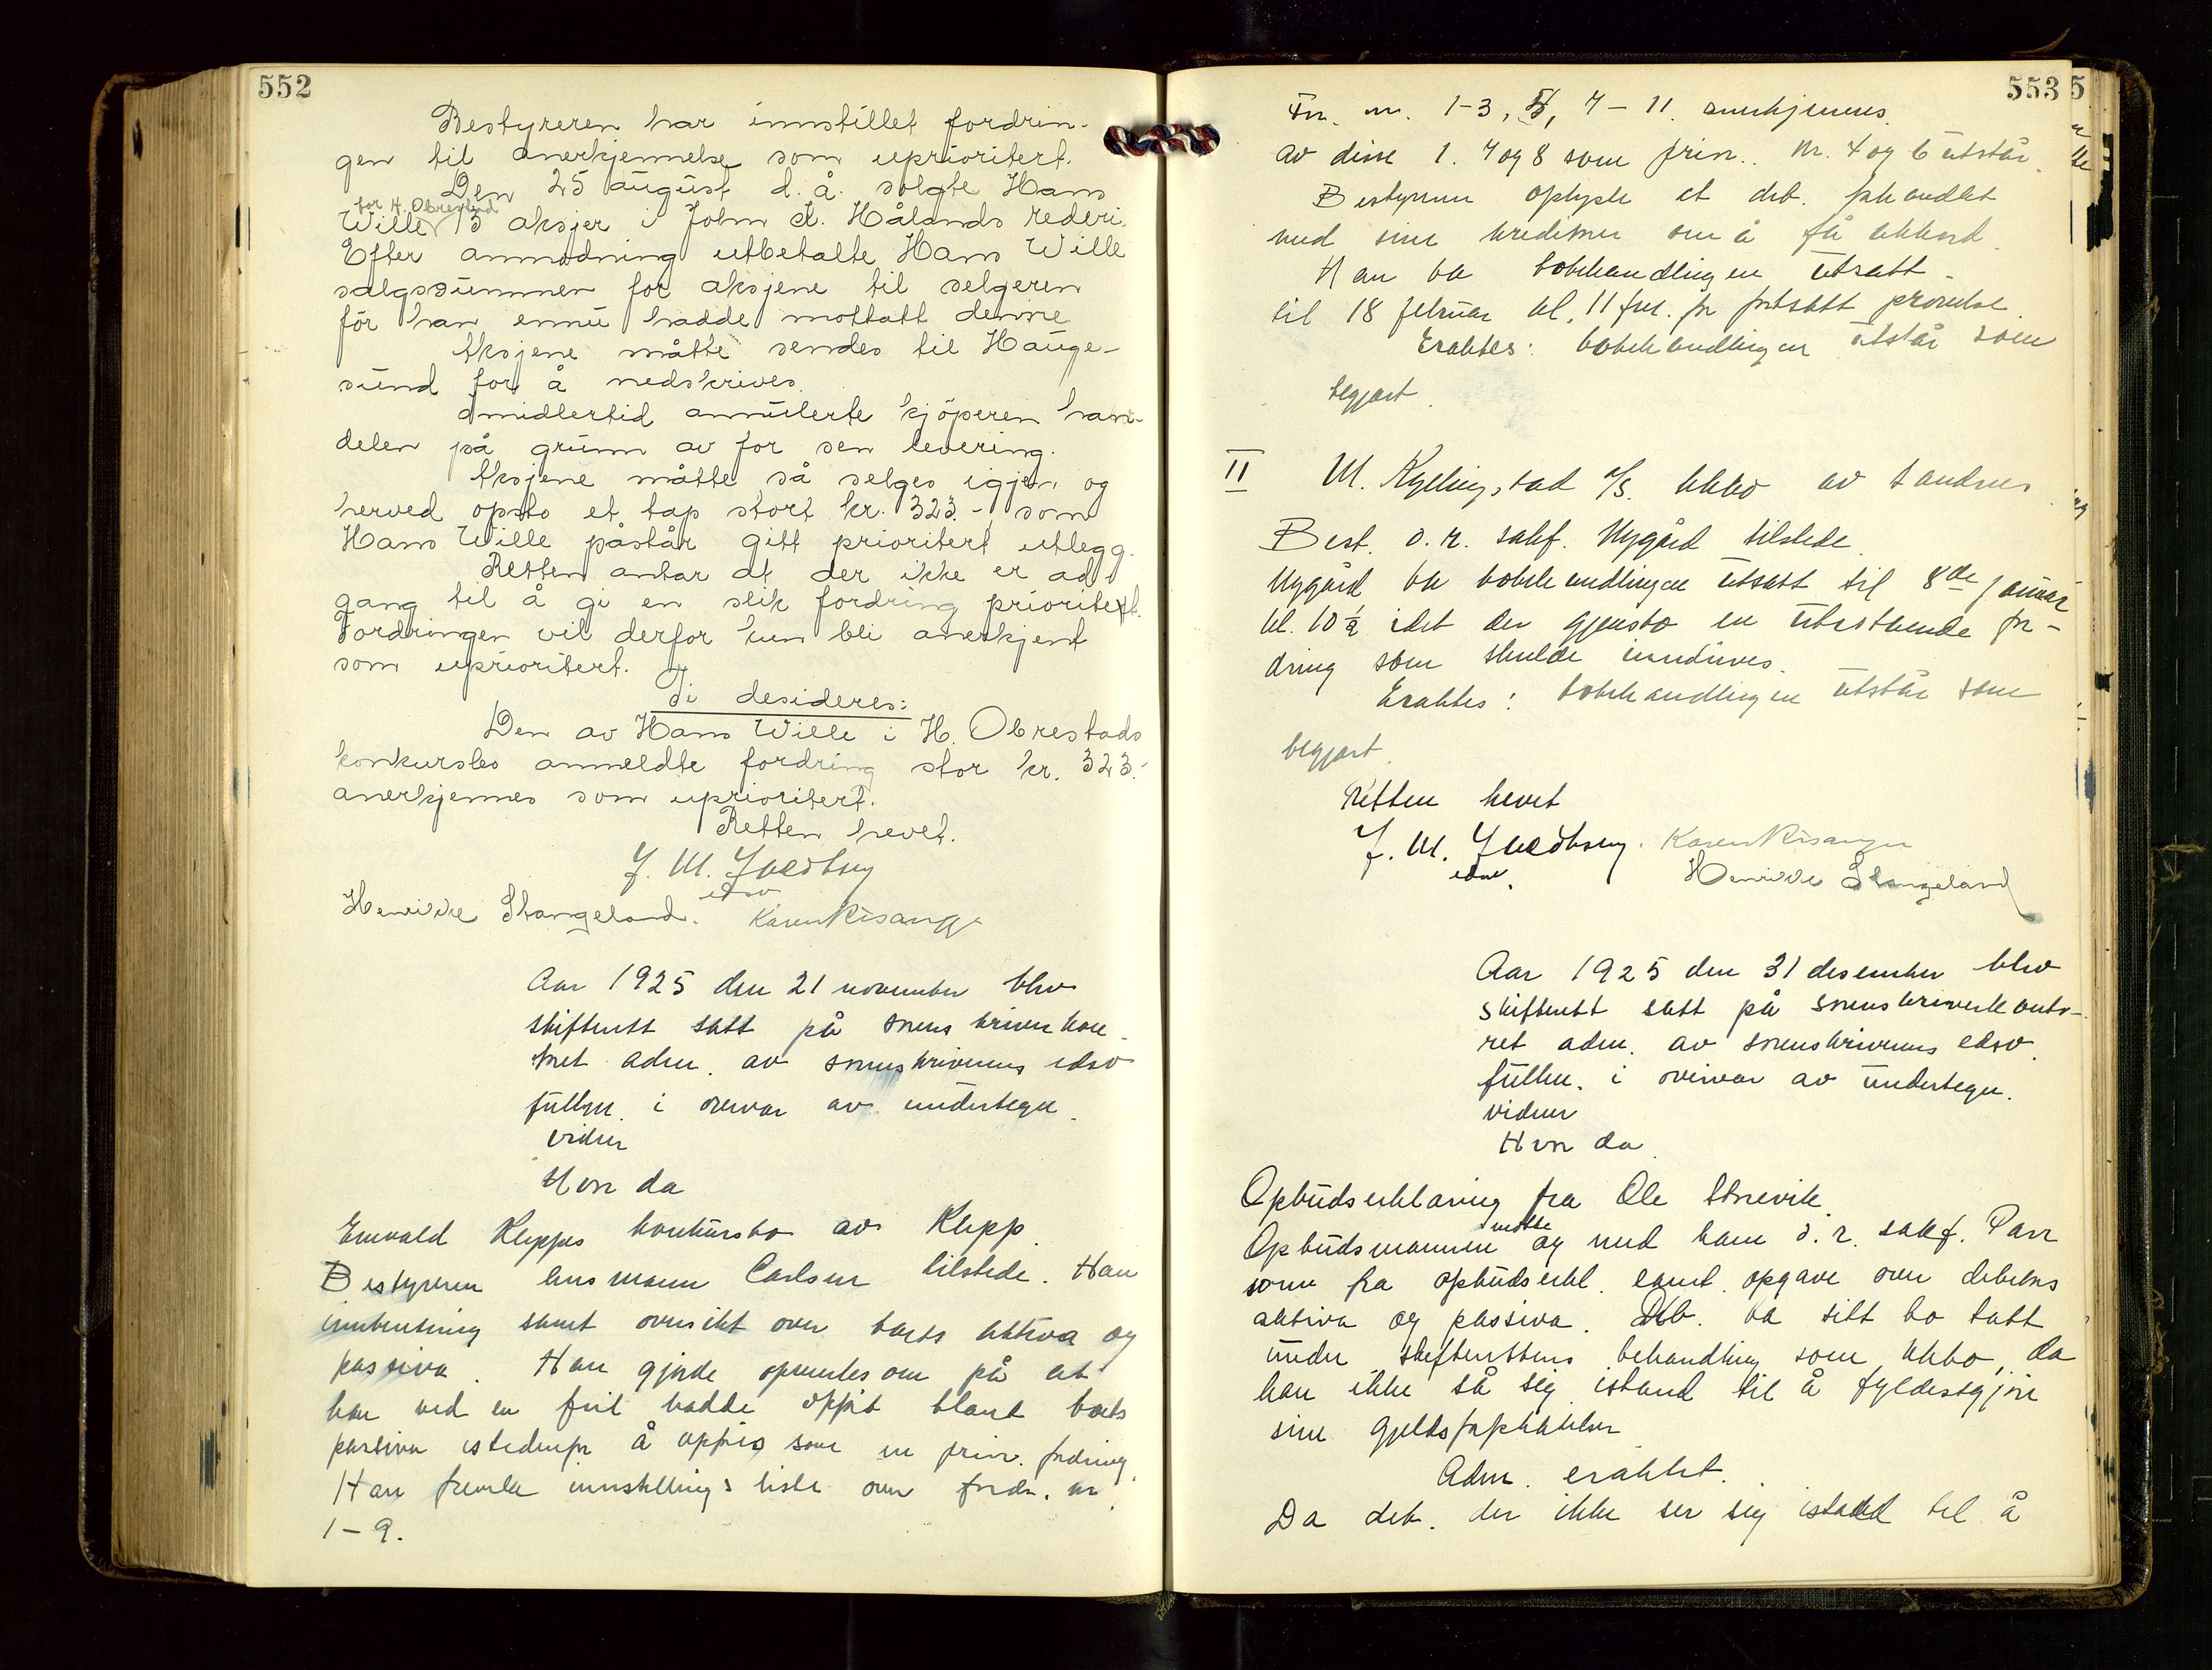 552
Bestyreren har innstillet fordrin-
gen til anerkjennelse som uprioritert.
Den 25 august d. å. solgte Hans
for H. Obrestad
Wille 13 aksjer i John K. Hålands rederi.
Efter anmodning utbetalte Hans Wille
salgssummen for aksjene til selgeren
för han ennu hadde mottatt denne
Aksjene måtte sendes til Hauge-
sund for å nedskrives.
Imidlertid annulerte kjöperen han-
delen på grunn av for sen levering.
Aksjene måtte så selges igjen og
herved opsto et tap stort kr. 323.- som
Hans Wille påstår gitt prioritert utlegg.
Retten antar at der ikke er ad-
gang til å gi en slik fordring prioritert.
Fordringen vil derfor kun bli anerkjent
som uprioritert.
Ti desideres:
Den av Hans Wille i H. Obrestads
konkursbo anmeldte fordring stor kr. 323.-
anerkjennes som uprioritert.
Retten hevet.
J. M. Jacobsen
edsv
Henrikke Stangeland. Karen Risanger
Aar 1925 den 21 november blev
skifterett satt på sorenskriverkon-
toret adm. av sorenskriverens edsv
fullm. i overvær av undertegn.
vidner
Hvor da
Enevald Kleppes konkursbo av Klepp.
Bestyreren lensmann Carlsen tilstede. Han
innberetning samt oversikt over boets aktiva og
passiva. Han gjorde opmerksom på at
han ved en feil hadde opfört blandt boets
passiva istedenfor å opföres som en prior. fordring.
Han fremla innstillings liste over fordr. nr
1-9.
553
For. nr. 1-3, 5, 7-11 anerkjennes.
av disse 1. 7 og 8 som prior.. Nr. 4 og 6 utstår.
Bestyreren oplyste at deb. forhandlet
med sine kreditorer om å få akkord.
Han ba bobehandlingen utsatt
til 18 februar kl. 11 form. for fortsatt prövelse.
Eraktes: bobehandlingen utstår som
begjært.
II M. Kyllingstad A/S. kkbo av Sandnes
Best. o.r. sakf. Nygård tilstede.
Nygård ba bobehandlingen utsatt til 8de januar
kl. 10 1/2 idet der gjensto en utestående for-
dring som skulde inndrives.
Eraktes: bobehandlingen utstår som
begjært.
Retten hevet
J. M. Jacobsen. Karen Risanger
edsv. Henrikke Stangeland
Aar 1925 den 31 desember blev
skifterett satt på sorenskriverkonto-
ret adm. av sorenskriverens edsv.
fullm. i overvær av undertegn.
vidner
Hvor da.
Opbudserklæring fra Ole Storevik.
mötte
Opbudsmannen og med ham o.r. sakf. Parr
som fra opbudserkl. samt opgave over debitors
aktiva og passiva. Deb. ba sitt bo tatt
under skifterettens behandling som kkbo, da
han ikke så sig istand til å fyldestgjöre
sine gjeldsforpliktelser
Adm. eraktet.
Da deb. der ikke ser sig istand til å